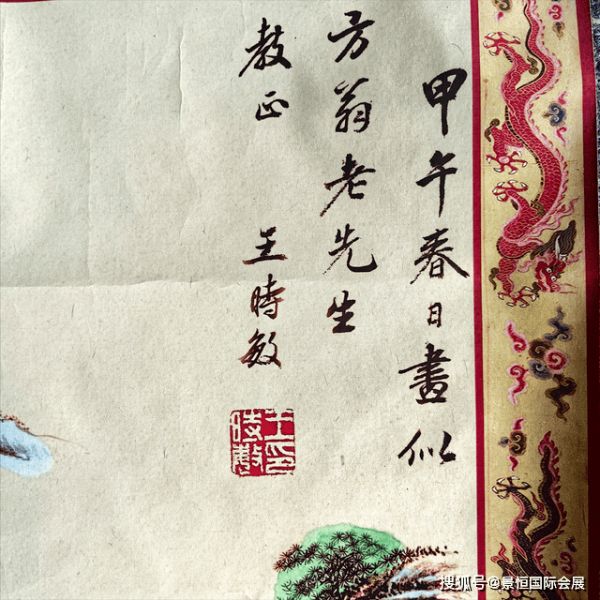 甲午春日畫似
方翁老先生
教正
王時敏
王時敏印
搜狐号@景恒国际会展